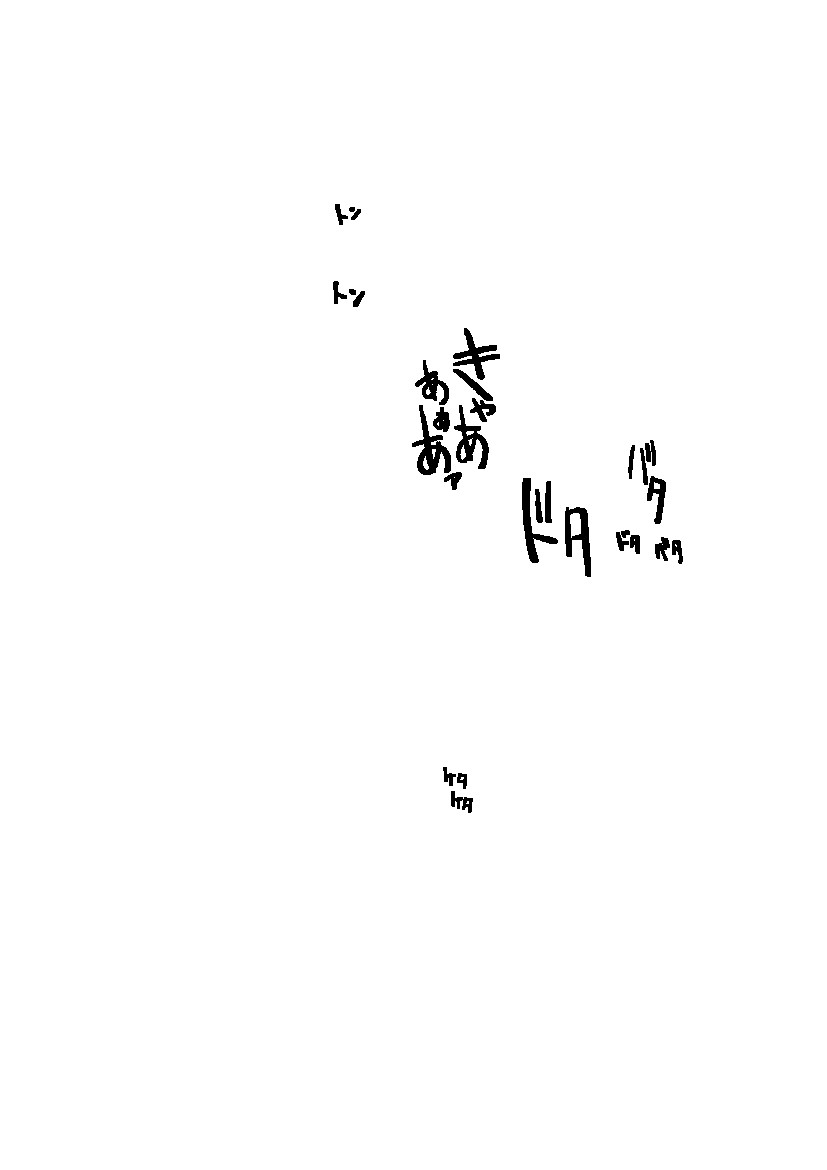 トン
トン
きゃあ
あぁあァ
バタ
ドタ
ドタ バタ
ケタ
ケタ